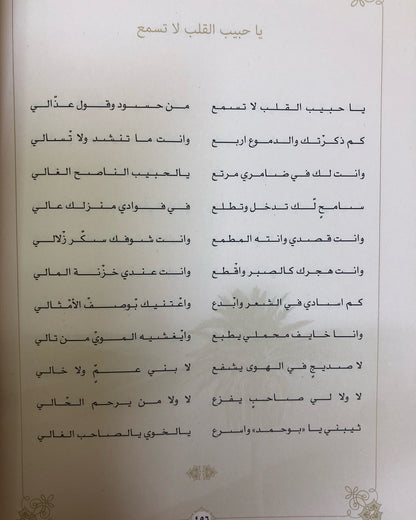 يا حبيب القلب لا تسمع
يا حبيب القلب لا تسمع من حسود وقول عذّالي
كم ذكرتك والدموع اربع وانت ما تنشد ولا تسالي
وانت لك في ضامري مرتع يالحبيب الناصح الغالي
سامحٍ لك تدخل وتطلع في فوادي منزلك عالي
وانت قصدي وانته المطمع وانت شوفك سكّر زلالي
وانت هجرك كالصبر واقْطع وانت عندي خزنة المالي
كم اسادي في الشعر وابْدع واعْتنيك بْوصفّ الأمْثالي
وانا خايف محملي يطبع وايْغشيه المويّ من تالي
لا صديجٍ في الهوى يشفع لا بني عمٍّ ولا خالي
لا ولا لي صاحبٍ يفزع لا ولا من يرحم الحْالي
ثيبني يا «بوحمد» واسرع يالخوي يالصاحب الغالي
٤٥٦